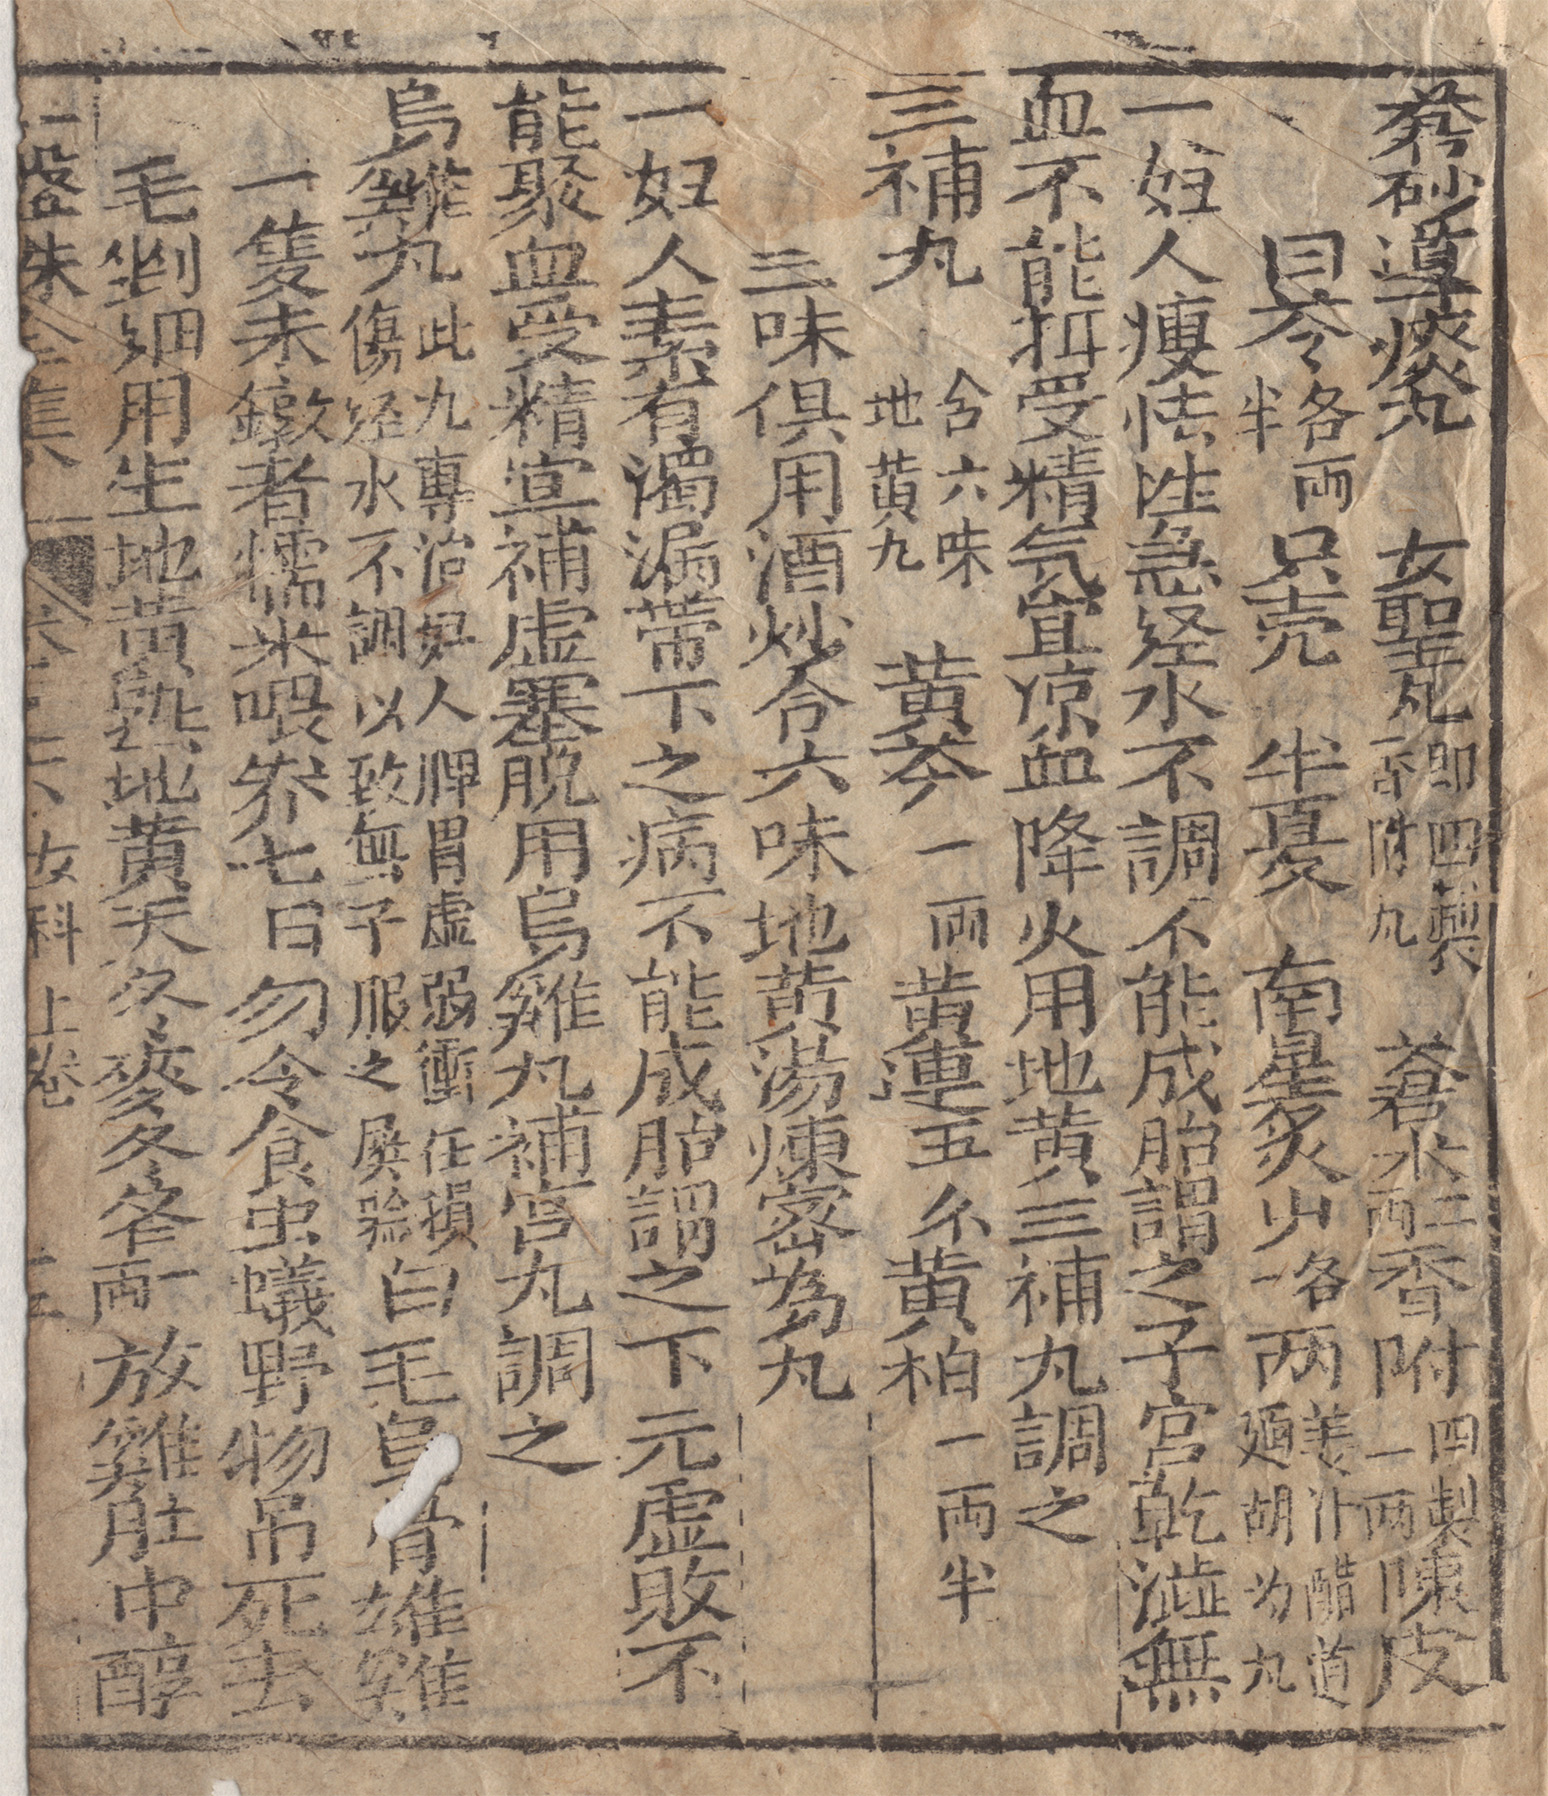 蒼砂導痰丸 女聖丸即四製香附丸 蒼术二両香附四製一两陳皮
白苓各両半 只壳 半夏 南星炙 各一两 姜汁醋 麺胡为丸
一妇人瘦怯性急经水不調不能成胎謂之子宫乾澁無
血不能摂受精気宜凉血降火用地黄三補丸調之
三補丸 合六味地黄九 黄芩一両 黄連五 黄栢一両半
三味俱用酒炒合六味地黄湯煉密為丸
一妇人素有濁漏带下之病不能成胎謂之下元虚敗不
能聚血受精宜補虚塞脱用烏雞丸補宫丸調之
烏雞丸此九專治妇人脾胃虚弱衝任損傷经水不調以致無子服之屡验白毛烏骨雄雞
一隻未鐓者糯米喂养七日勿令食虫蟻野物吊死去
毛剉细用生地黄熟地黄天冬麥冬各一両放雞肚中醇
朱 集 女科 上卷